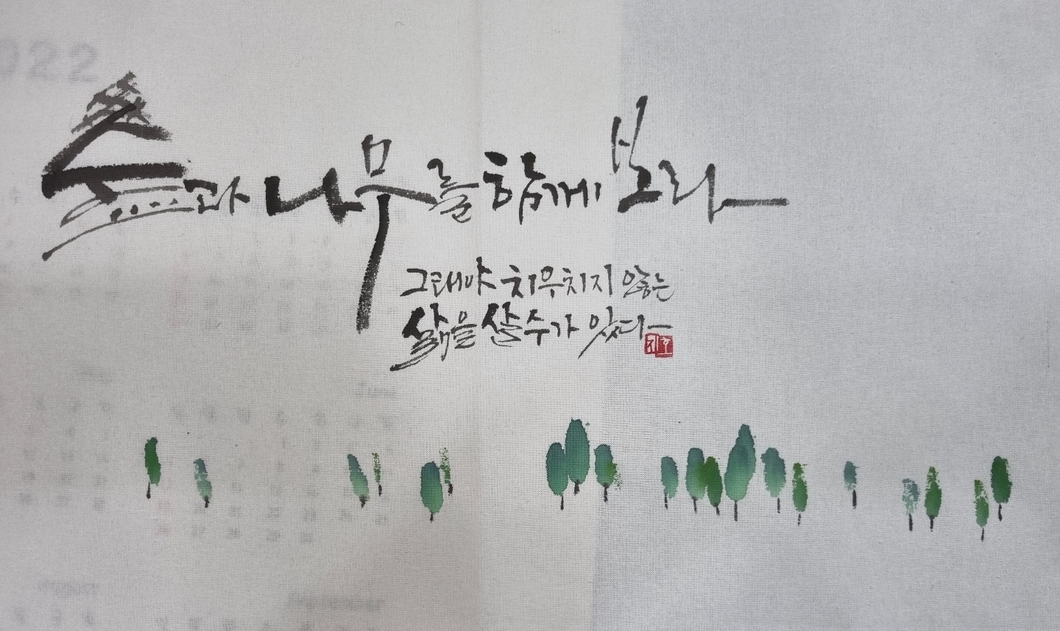 2022
숲과 나무를 함께 보라
그래야 치우치지 않는
삶을 살 수가 있다
June
August
September